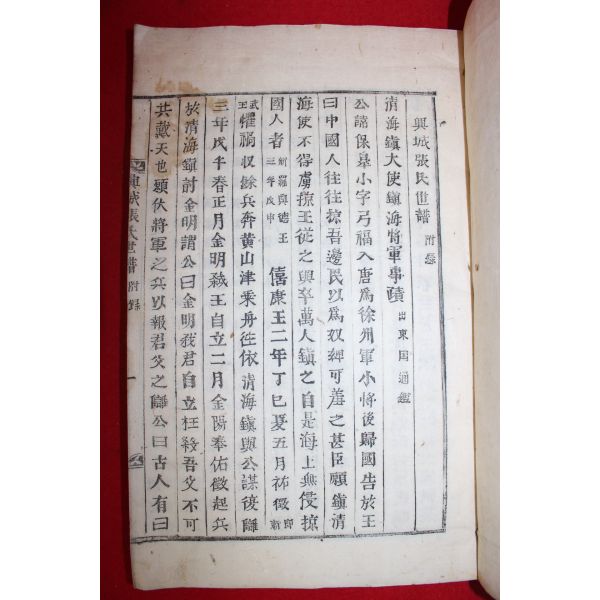 興城張氏世譜 附錄
清海鎭大使鎭海將軍事蹟 出東国通鑑
公諱保皐小字弓福入唐爲徐州軍小將後歸國告於王
曰中國人往往掠吾邊民以爲奴婢可羞之甚臣願鎭清
海使不得虜掠王從之與卒萬人鎭之自是海上無侵掠
國人者 新羅興德王三年戊申 僖康王二年丁巳夏五月祐徵 卽新
武王 懼禍収餘兵奔黃山津乘舟往依清海鎭與公謀復讎
三年戊午春正月金明弑王自立二月金陽奉佑徵起兵
於清海鎭討金明謂公曰金明我君自立枉殺吾父不可
共戴天也願仗將軍之兵以報君父之讎公曰古人有曰
興城張氏世譜 附錄